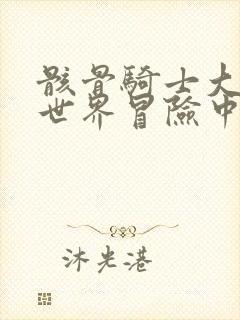 骸骨騎士大
世界冒險中
沐光港